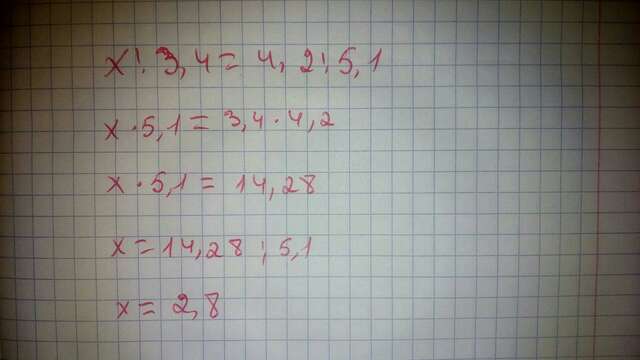 x : 3,4 = 4,2 : 5,1
x · 5,1 = 3,4 · 4,2
x · 5,1 = 14,28
x = 14,28 : 5,1
x = 2,8